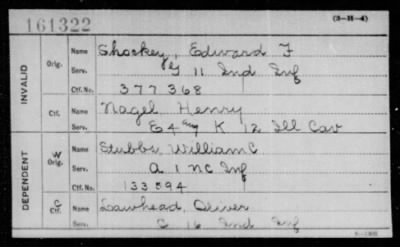 161322
(3-11-4)
INVALID
Orig.
Name Shockey, Edward F
Serv. G 11 Ind Inf
Ctf. No. 377368
Ctf.
Name Nagel Henry
Serv. E 4 & K 12 Ill Cav
DEPENDENT
W
Orig.
Name Stubbs, William C
Serv. A 1 NC Inf
Ctf. No. 133594
C
Ctf.
Name Lawhead, Oliver
Serv. C 16 Ind Inf